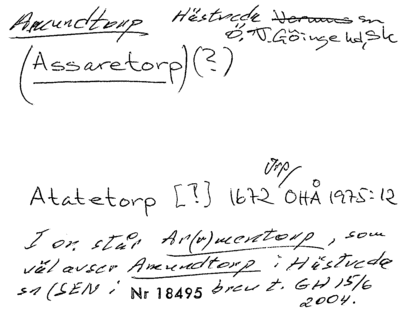 Amundtorp Hästveda Vernums sn
Ö, V. Göinge hd, Sk
(Assaretorp)(?)
Örp/
Atatetorp [?] 1672 ÖHÅ 1975:12
I or. står Ar(r)mentorp, som
väl avser Amundtorp i Hästveda
sn (SEN i Nr 18495 brev t. GH 15/6
2004.